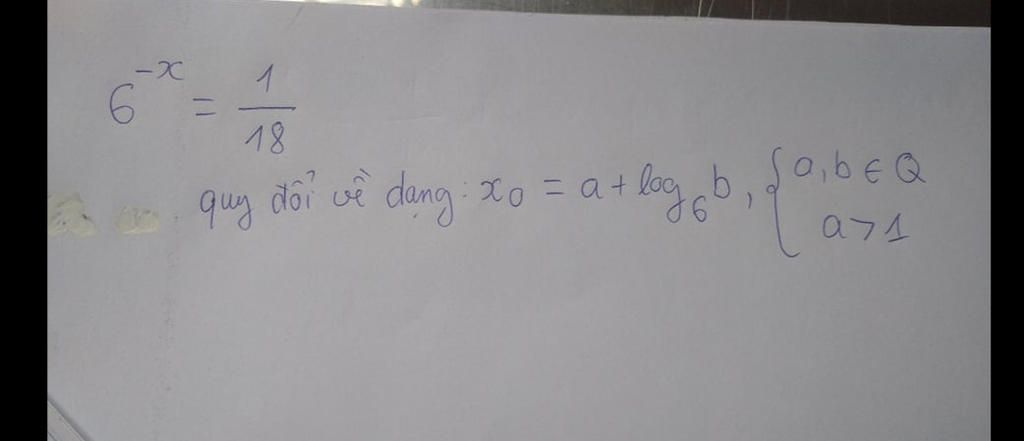 6^{-x} = \frac{1}{18}
quy đổi về dạng: x_0 = a + log_6 b, { a, b ∈ Q
a > 1